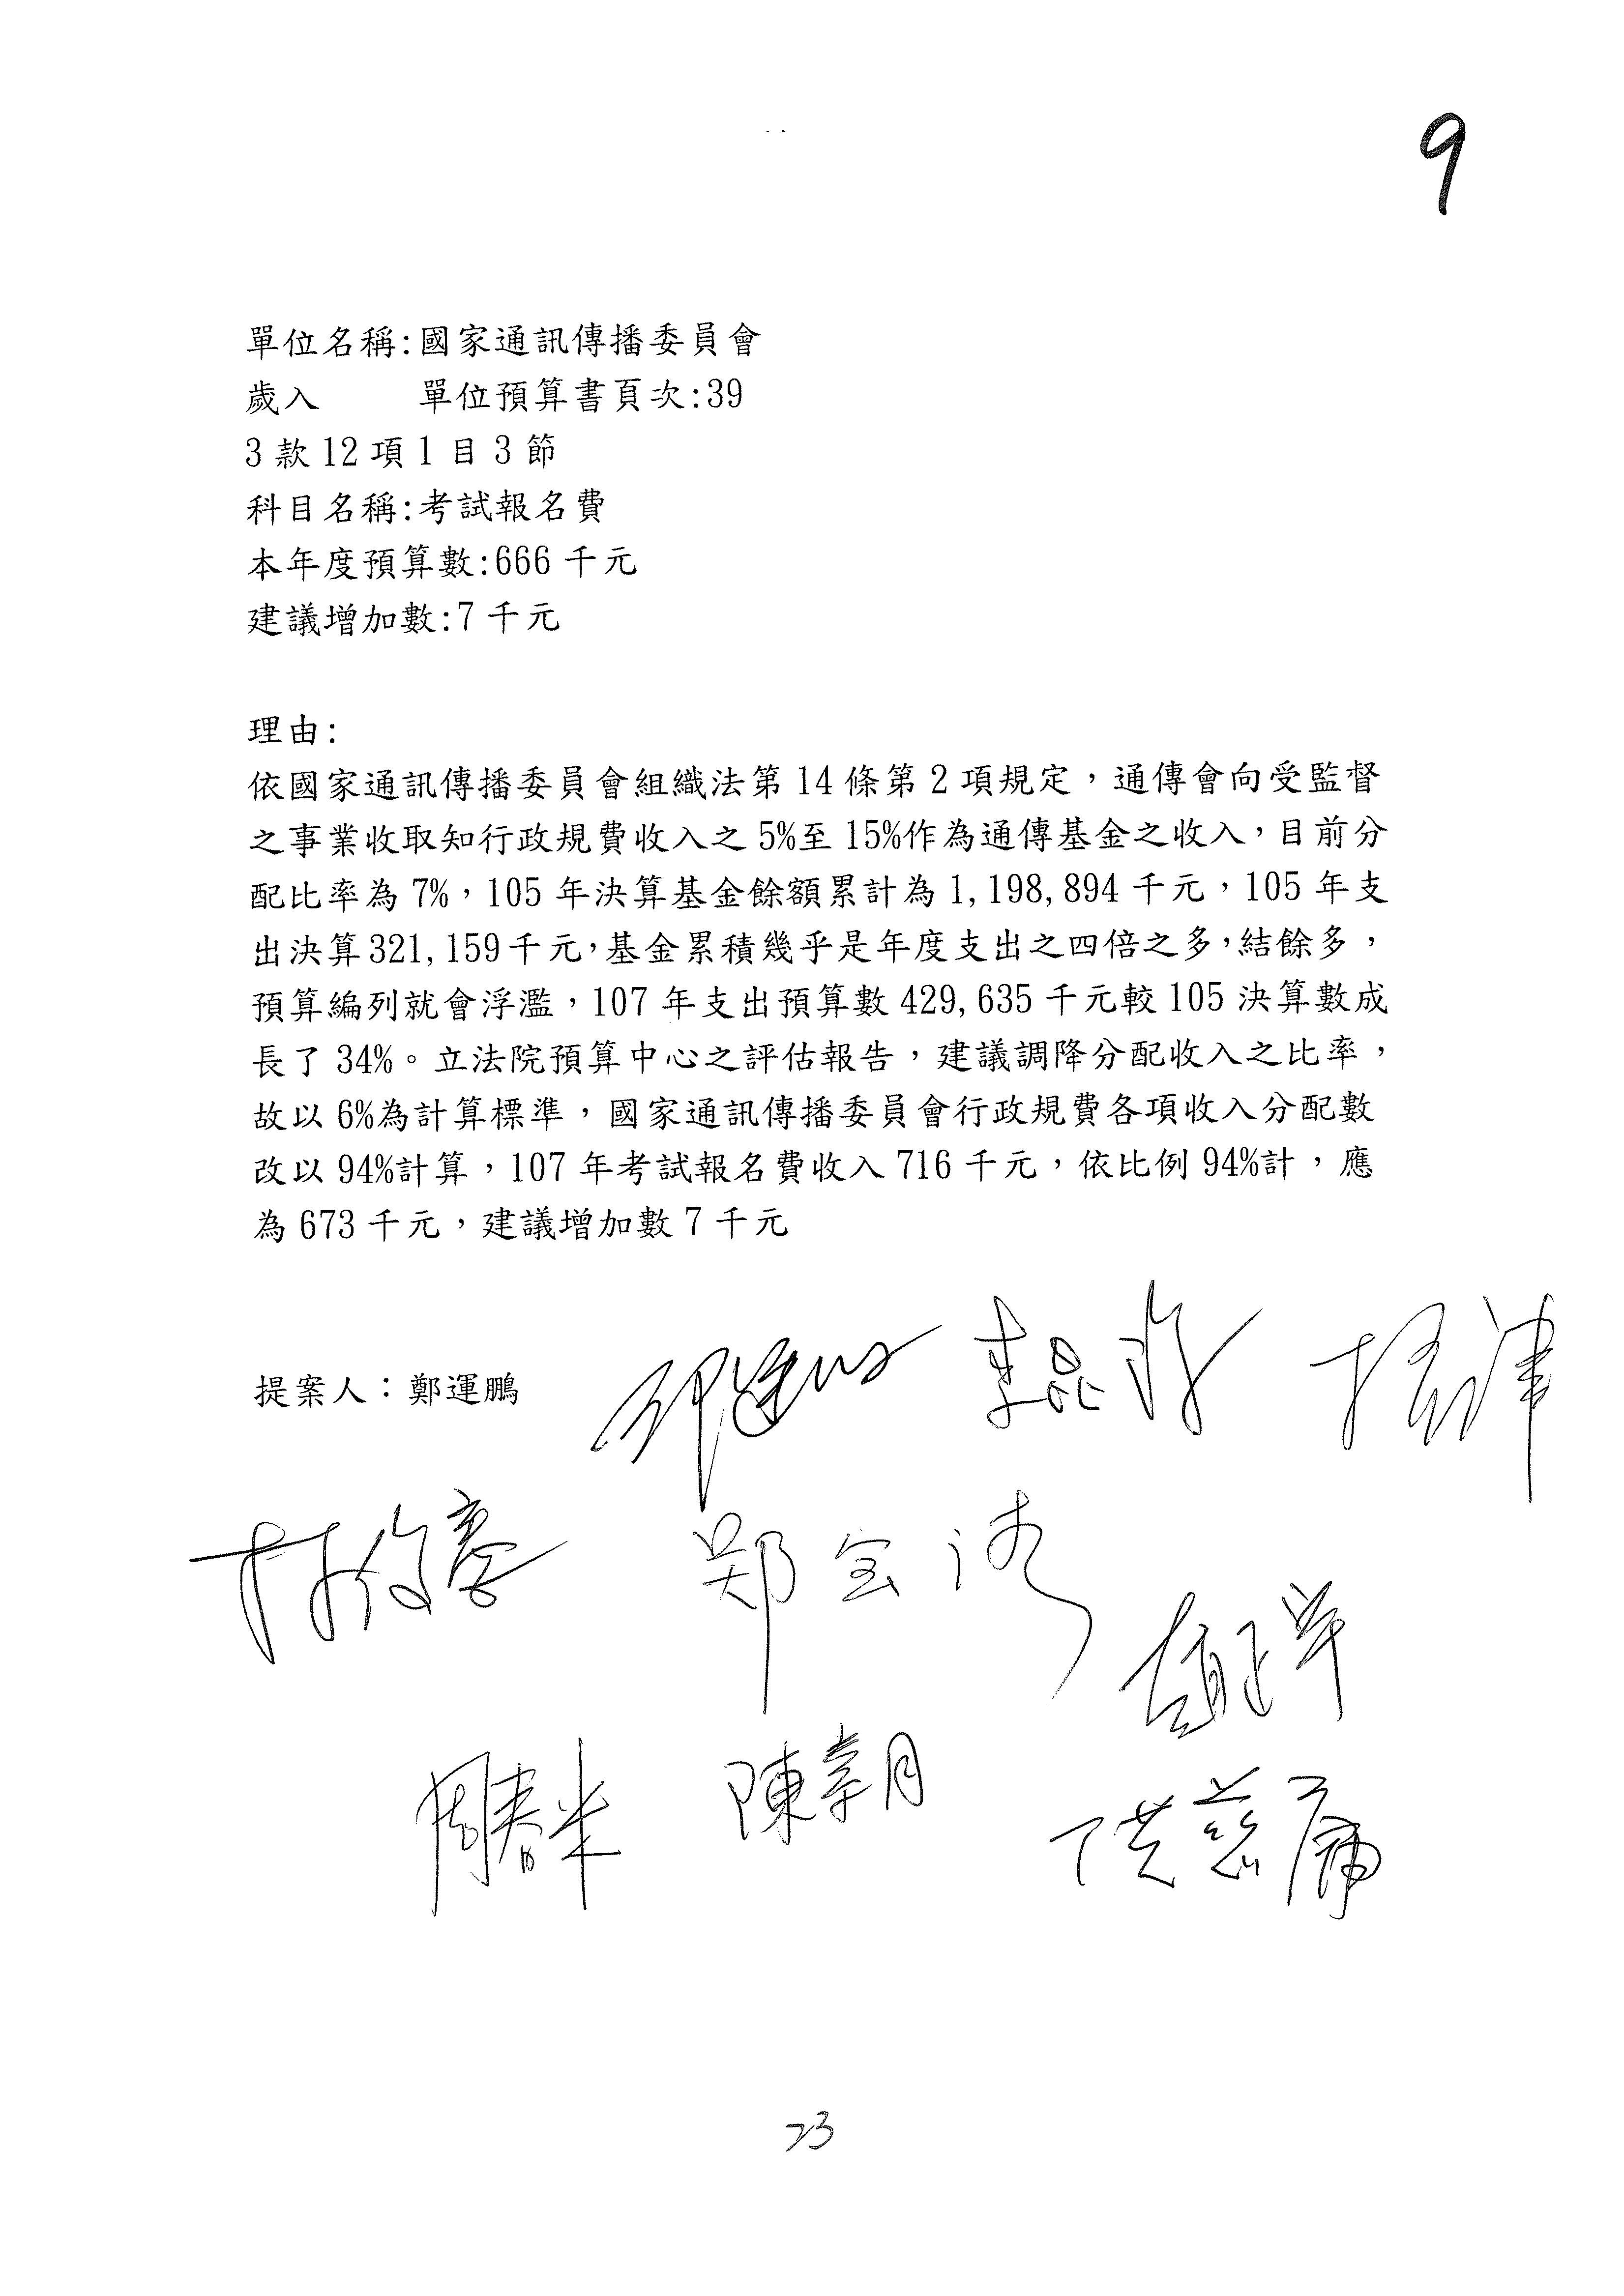 9
單位名稱:國家通訊傳播委員會
歲入 單位預算書頁次:39
3 款 12 項 1 目 3 節
科目名稱:考試報名費
本年度預算數:666 千元
建議增加數:7 千元
理由:
依國家通訊傳播委員會組織法第 14 條第 2 項規定，通傳會向受監督
之事業收取知行政規費收入之 5%至 15%作為通傳基金之收入，目前分
配比率為 7%，105 年決算基金餘額累計為 1,198,894 千元，105 年支
出決算 321,159 千元，基金累積幾乎是年度支出之四倍之多，結餘多，
預算編列就會浮濫，107 年支出預算數 429,635 千元較 105 決算數成
長了 34%。立法院預算中心之評估報告，建議調降分配收入之比率，
故以 6%為計算標準，國家通訊傳播委員會行政規費各項收入分配數
改以 94%計算，107 年考試報名費收入 716 千元，依比例 94%計，應
為 673 千元，建議增加數 7 千元
提案人：鄭運鵬
李昆澤
鄭宝清
周春米 陳明
洪慈庸
23